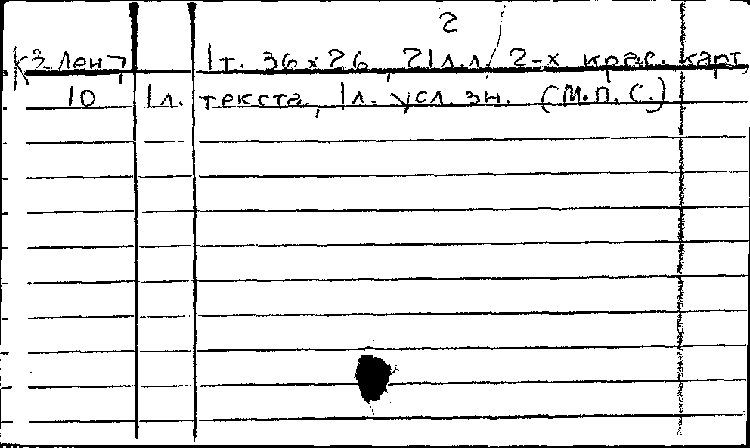 2
К 2-Лен 7 1 т. 36×26, 21 л.л. 2-х крас. карт,
10 1 л. текста, 1 л. усл. зн. (М.П.С.)